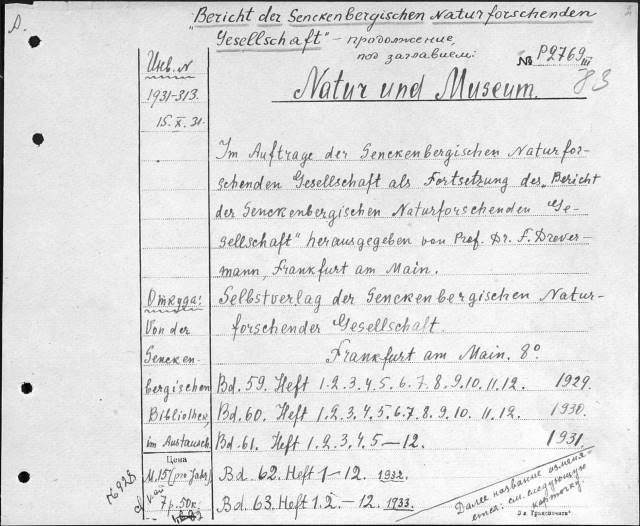 D.
"Bericht der Senckenbergischen Naturforschenden
Gesellschaft" – продолжение,
под заглавием:
№ P2769 III
83
Natur und Museum.
Инв. N
1931-313.
15.X.31.
Im Auftrage der Senckenbergischen Naturfor-
schenden Gesellschaft als Fortsetzung des „Bericht
der Senckenbergischen Naturforschenden Ge-
sellschaft" herausgegeben von Prof. Dr. F. Drever-
mann, Frankfurt am Main.
Selbstverlag der Senckenbergischen Natur-
forschender Gesellschaft.
Frankfurt am Main. 8°.
Откуда:
Von der
Sencken-
bergischen
Bibliothek,
im Austausch
Bd. 59. Heft 1.2.3.4.5.6.7.8.9.10.11.12. 1929.
Bd. 60. Heft 1.2.3.4.5.6.7.8.9.10.11.12. 1930.
Bd. 61. Heft 1.2.3.4.5–12. 1931.
Цена
M.15 (pro Jahr)
7р.50к.
Bd. 62. Heft 1–12. 1932.
Bd. 63. Heft 1.2.–12. 1933.
Далее название изменя-
ется: см. следующую
карточку.